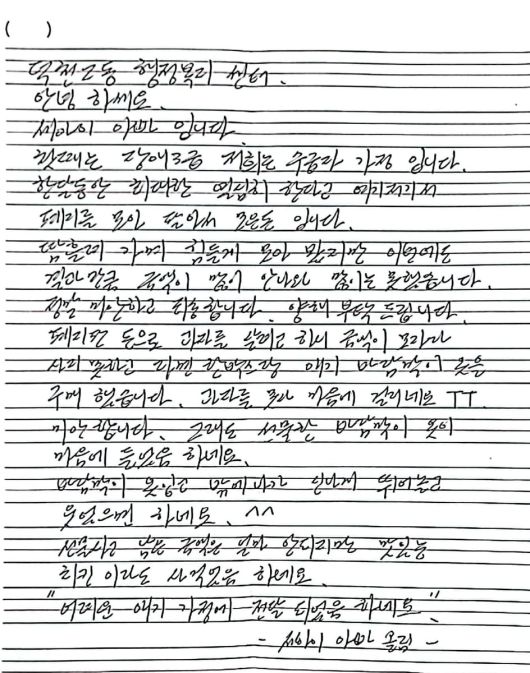 (      )
덕천2동 행정복지 센터.
안녕 하세요.
세아이 아빠 입니다.
첫째는 장애3급 저희는 수급자 가정 입니다.
한달동안 최대한 열심히 한다고 여기저기서
폐지를 모아 팔아서 모은돈 입니다.
땀흘려 가며 힘들게 모아 봤지만 이번에도
금액이 많이 안나와 많이는 못했습니다.
정말 미안하고 죄송합니다. 양해 부탁드립니다.
폐지판 돈으로 과자를 살려고 하니 금액이 모자라
사지 못하고 라면 한박스랑 애기 바람막이 옷을
구매 했습니다. 과자를 못사 마음에 걸리네요 ㅠㅠ.
미안합니다. 그래도 선물한 바람막이 옷이
마음에 들었음 하네요.
바람막이 옷입고 밖에나가 신나게 뛰어놀고
웃었으면 하네요. ^^
남은 금액은 얼마 안되지만 맛있는
치킨 이라도 사먹었음 하네요.
"어려운 애기 가정에 전달 되었음 하네요."
- 세아이 아빠 올림 -